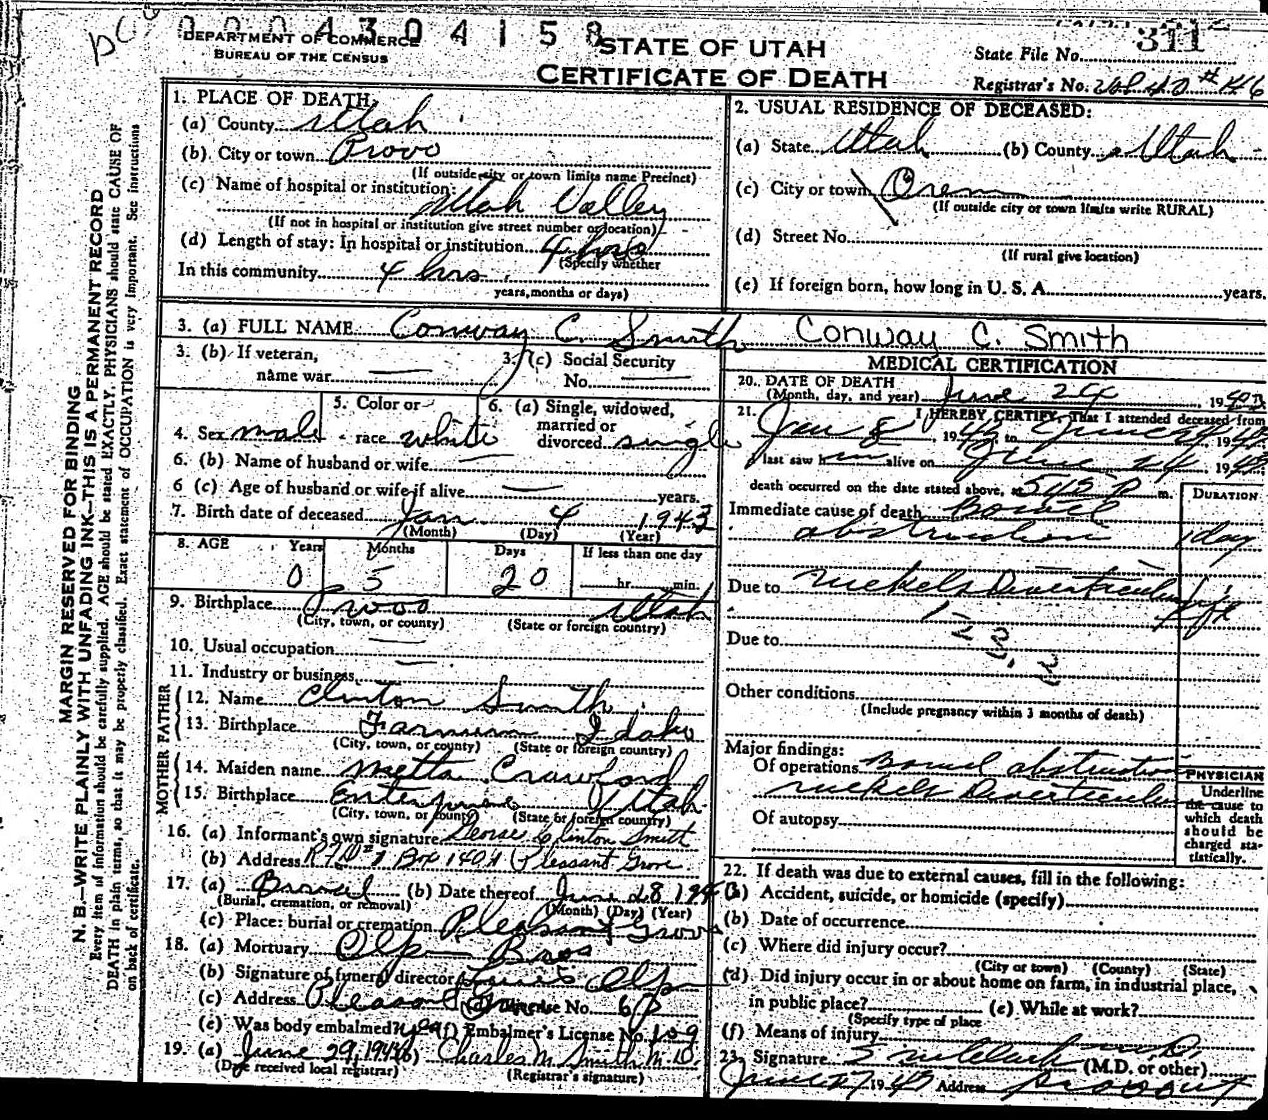 0004304158
DEPARTMENT OF COMMERCE
BUREAU OF THE CENSUS
STATE OF UTAH
CERTIFICATE OF DEATH
State File No. 311
Registrar's No. #146
MARGIN RESERVED FOR BINDING
N. B.—WRITE PLAINLY WITH UNFADING INK—THIS IS A PERMANENT RECORD
Every item of information should be carefully supplied. AGE should be stated EXACTLY. PHYSICIANS should state CAUSE OF
DEATH in plain terms, so that it may be properly classified. Exact statement of OCCUPATION is very important. See instructions
on back of certificate.
1. PLACE OF DEATH:
(a) County Utah
(b) City or town Provo
(If outside city or town limits name Precinct)
(c) Name of hospital or institution:
Utah Valley
(If not in hospital or institution give street number or location)
(d) Length of stay: In hospital or institution 4 hrs
(Specify whether
In this community 4 hrs
years, months or days)
2. USUAL RESIDENCE OF DECEASED:
(a) State Utah (b) County Utah
(c) City or town Orem
(If outside city or town limits write RURAL)
(d) Street No.
(If rural give location)
(e) If foreign born, how long in U. S. A. years.
3. (a) FULL NAME Conway C. Smith Conway C. Smith
3. (b) If veteran,
name war
3. (c) Social Security
No.
4. Sex male
5. Color or
race white
6. (a) Single, widowed,
married or
divorced single
6. (b) Name of husband or wife
6 (c) Age of husband or wife if alive years.
7. Birth date of deceased Jan 4 1943
(Month) (Day) (Year)
8. AGE Years Months Days If less than one day
0 5 20 hr. min.
9. Birthplace Provo Utah
(City, town, or county) (State or foreign country)
10. Usual occupation
11. Industry or business
FATHER
12. Name Clinton Smith
13. Birthplace Idaho
(City, town, or county) (State or foreign country)
MOTHER
14. Maiden name Metta Crawford
15. Birthplace Enterprise Utah
(City, town, or county) (State or foreign country)
16. (a) Informant's own signature George Clinton Smith
(b) Address RFD #1 Box 140A Pleasant Grove
17. (a) Burial (b) Date thereof June 28 194
(Burial, cremation, or removal) (Month) (Day) (Year)
(c) Place: burial or cremation Pleasant Grove
18. (a) Mortuary Olpin Bros
(b) Signature of funeral director Olpin
(c) Address Pleasant Grove (d) License No.
(e) Was body embalmed? yes (f) Embalmer's License No. 109
19. (a) June 29, 194 (b) Charles M. Smith M.D.
(Date received local registrar) (Registrar's signature)
MEDICAL CERTIFICATION
20. DATE OF DEATH
(Month, day, and year) June 24 19
21. I HEREBY CERTIFY, That I attended deceased from
Jan 8 1943 to June 24 19
last saw him alive on June 24 1943
death occurred on the date stated above, at 5:45 P m.
DURATION
Immediate cause of death Bowel
obstruction 1 day
Due to Meckels Diverticulum life
Due to
Other conditions
(Include pregnancy within 3 months of death)
Major findings:
Of operations Bowel obstruction
Meckels Diverticulum
Of autopsy
PHYSICIAN
Underline
the cause to
which death
should be
charged sta-
tistically.
22. If death was due to external causes, fill in the following:
(a) Accident, suicide, or homicide (specify)
(b) Date of occurrence
(c) Where did injury occur?
(City or town) (County) (State)
(d) Did injury occur in or about home on farm, in industrial place,
in public place? (e) While at work?
(Specify type of place
(f) Means of injury
23. Signature Clark M.D. (M.D. or other)
June 27 19 Address Provo Ut